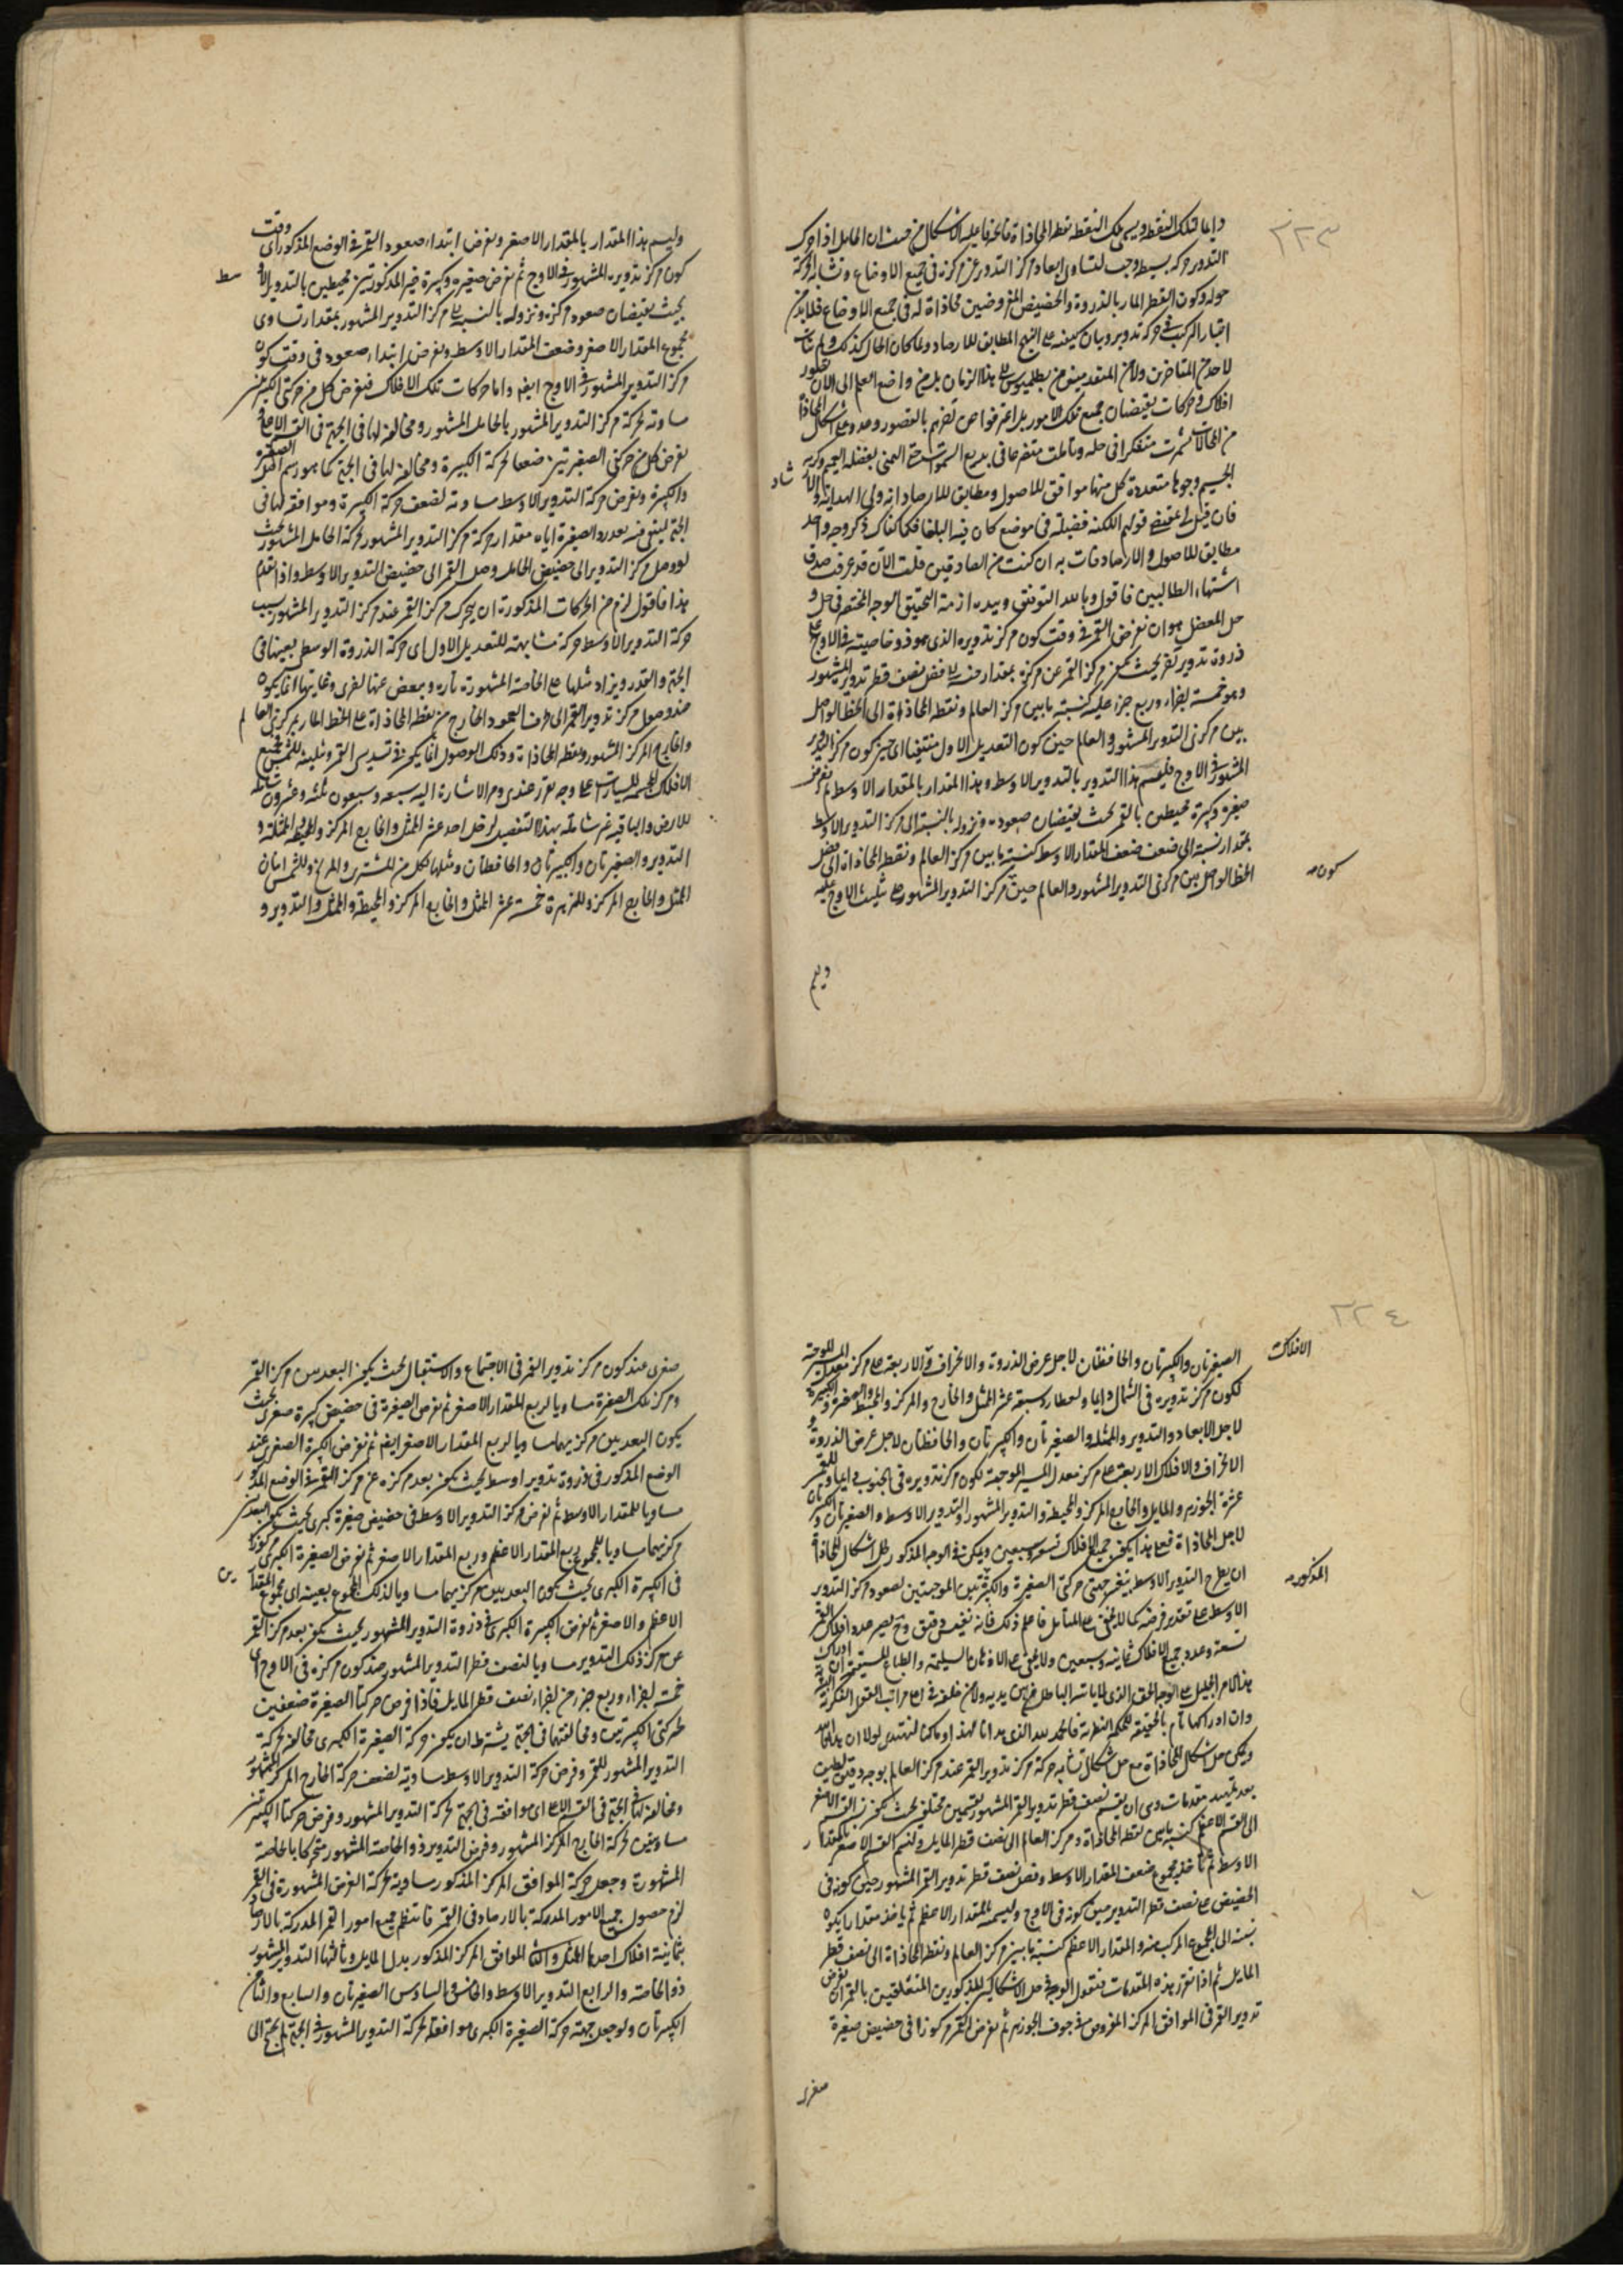 ٢٢٣
دايما تلك النقطه ويسمى تلك النقطه نقطه المحاذاة فاعليه الاشكال من حيث ان الحامل اذا حرك
التدوير حركه بسيطه وجب تساوى ابعاد مركز التدوير عن مركزه فى جميع الاوضاع وتشابه الحركة
حوله وكون القطر المار بالذروة والحضيض المفروضين محاذاة له فى جميع الاوضاع فلابد من
اعتبار المركب فى حركه تدويره وبيان كيفيته على النهج المطابق للارصاد ولما كان الحال كذلك ولم يتأت
لاحد من المتاخرين ولا من المتقدمين من بطلميوس الى هذا الزمان بل من واضع العلم الى الآن تصور
افلاك وحركات يقتضيان جميع تلك الامور بل اعترفوا عن آخرهم بالقصور وعدوا اشكال المحاذاة
من المحالات شمرت متفكرا فى حله وتأملت متضرعا فى بديع السموات حتى الهمنى بفضله العميم وكرمه
الجسيم وجوها متعددة كل منها موافق للاصول ومطابق للارصاد انه ولى الهداية والارشاد
فان قيل قولهم اللكنه فضيلة فى موضع كان فيه البلغا فكما كفاك ذكر وجه واحد
مطابق للاصول والارصاد فات به ان كنت من الصادقين قلت الآن قد عرفت صدق
اشتهاء الطالبين فاقول وبالله التوفيق وبيده ازمة التحقيق الوجه المختصر فى حل
حل المعضل هو ان نفرض القمر فى وقت كون مركز تدويره الذى هو ذو خاصيته فى الاوج على
ذروة تدوير آخر بحيث يكون مركز القمر عن مركزه بمقدار فضل نصف قطر تدوير المشهور
وهو خمسة اجزاء وربع جزء عليه كنسبة ما بين مركز العالم ونقطه المحاذاة الى الخط الواصل
بين مركزى التدوير المشهور والعالم حين كون التعديل الاول منتفيا اى حين كون مركز التدوير
المشهور فى الاوج فليسم هذا التدوير بالتدوير الاوسط وهذا المقدار بالمقدار الاوسط ثم نفرض
صغيرة وكبيرة محيطين بالقمر بحيث يقتضيان صعوده ونزوله بالنسبة الى مركز التدوير الاوسط
بمقدار نسبته الى ضعف ضعف المقدار الاوسط كنسبة ما بين مركز العالم ونقطه المحاذاة الى فضل
الخط الواصل بين مركزى التدوير المشهور والعالم حين مركز التدوير المشهور على تثليث الاوج عليه
كون صح
ويسم
وليسم هذا المقدار بالمقدار الاصغر ونفرض ابتداء صعود القمر فى الوضع المذكور اى وقت
كون مركز تدويره المشهور فى الاوج ثم نفرض صغيرة وكبيرة غير المذكورتين محيطين بالتدوير الاوسط
بحيث يقتضيان صعود مركزه ونزوله بالنسبة الى مركز التدوير المشهور بمقدار تساوى
مجموع المقدار الاصغر وضعف المقدار الاوسط ونفرض ابتداء صعوده فى وقت كون
مركز التدوير المشهور فى الاوج ايضا واما حركات تلك الافلاك فنفرض كل من حركتى الكبيرتين
مساوته لحركة مركز التدوير المشهور بالحامل المشهور ومخالفة لها فى الجهة فى القسم الاعلى و
نفرض كل من حركتى الصغيرتين ضعفا لحركة الكبيرة ومخالفة لها فى الجهة كما هو رسم الصغيرة
والكبيرة ونفرض حركة التدوير الاوسط مساوته لضعف حركة الكبيرة وموافقة لها فى
الجهة ليبقى منه بعد رد الصغيرة اياه مقدار حركة مركز التدوير المشهور لحركة الحامل المشهور بحيث
لو وصل مركز التدوير الى حضيض الحامل وصل القمر الى حضيض التدوير الاوسط واذا تقدم
هذا فاقول لزم من الحركات المذكورة ان يحرك مركز القمر عند مركز التدوير المشهور بسبب
حركة التدوير الاوسط حركة مشابهة للتعديل الاول اى حركة الذروة الوسطى بعينها فى
الجهة والقدر ويزاد مثلها على الخاصة المشهورة تارة وينقص عنها اخرى وغايتها انما يكون
عند وصول مركز تدوير القمر الى طرف العمود الخارج من نقطه المحاذاة على الخط المار بمركزى العالم
والخارج المركز المشهور ونقطه المحاذاة وذلك الوصول انما يكون فى تسديس القمر وتثليثه للشمس فجميع
الافلاك للسيارات على وجه تقرر عندى ومر الاشارة اليه سبعه وسبعون ثلثه وعشرون شاملة
للارض والباقيه غير شاملة بهذا التفصيل لزحل احد عشر الممثل والخارج المركز والمحيطة والمميلة و
التدوير والصغيرتان والكبيرتان والحافظتان ومثلها لكل من المشترى والمريخ وللشمس اثنان
الممثل والخارج المركز وللزهرة خمسة عشر الممثل والخارج المركز والمحيطة والممثل والتدوير و
٢٢٤
الافلاك
الصغيرتان والكبيرتان والحافظتان لاجل عرض الذروة والانحراف والاربعة على مركز معدل المسير الموجبة
لكون مركز تدويره فى الشمال دايما ولعطارد سبعة عشر الممثل والخارج المركز والمحيط والصغيرة والكبيرة
لاجل الابعاد والتدوير والممثل والصغيرتان والكبيرتان والحافظتان لاجل عرض الذروة و
الانحراف والافلاك الاربعة على مركز معدل المسير الموجبة لكون مركز تدويره فى الجنوب دايما وللقمر
عشرة الجوزهر والمايل والخارج المركز والمحيطة والتدوير المشهور والتدوير الاوسط والصغيرتان والكبيرتان
لاجل المحاذاة فعلى هذا يكون جميع الافلاك تسعة وسبعين ويمكن فى الوجه المذكور لحل اشكال المحاذاة
ان يطرح التدوير الاوسط بتغير جهتى حركتى الصغيرة والكبيرة الموجبتين لصعود مركز التدوير
المذكورة صح
الاوسط على تقدير فرضه كما لا يخفى على المتأمل فاعلم ذلك فانه نفيس دقيق وح يصير عدد افلاك القمر
تسعة وعدد جميع الافلاك ثمانية وسبعين ولا يخفى على الاذهان السليمة والطباع المستقيمة ان ادراك
هذا الامر الجليل على الوجه الحق الذى لا ياتيه الباطل من بين يديه ولا من خلفه فى اعلى مراتب القوة الفكرية
وان ادراكها تام بالحقيقة للحكمة النظرية فالحمد لله الذى هدانا لهذا وما كنا لنهتدى لولا ان هدانا الله
ويمكن حل اشكال المحاذاة مع حل اشكال تشابه حركة مركز تدوير القمر عند مركز العالم بوجه دقيق لطيف
بعد تمهيد مقدمات وهى ان يقسم نصف قطر تدوير القمر المشهور بقسمين مختلفين بحيث يكون نسبة القسم الاصغر
الى القسم الاعظم كنسبة ما بين نقطه المحاذاة ومركز العالم الى نصف قطر المايل وليسم القسم الاصغر بالمقدار
الاوسط ثم نأخذ مجموع ضعف المقدار الاوسط وفضل نصف قطر تدوير القمر المشهور حين كونه فى
الحضيض على نصف قطر التدوير حين كونه فى الاوج وليسمه بالمقدار الاعظم ثم ياخذ مقدارا يكون
نسبته الى المجموع المركب منه والمقدار الاعظم كنسبة ما بين مركز العالم ونقطه المحاذاة الى نصف قطر
المايل ثم اذا تقرر هذه المقدمات فنقول الوجه فى حل الاشكالين المذكورين المتعلقين بالقمر ان نفرض
تدوير القمر فى الموافق المركز المفروض فى جوف الجوزهر ثم نفرض القمر مركوزا فى حضيض صغيرة
صغرى
صغرى عند كون مركز تدوير القمر فى الاجتماع والاستقبال بحيث يكون البعد بين مركز القمر
ومركز تلك الصغيرة مساويا لربع المقدار الاصغر ثم نفرض الصغيرة فى حضيض كبيرة صغرى بحيث
يكون البعد بين مركزيهما مساويا لربع المقدار الاصغر ايضا ثم نفرض الكبيرة الصغرى عند
الوضع المذكور فى ذروة تدوير اوسط بحيث يكون بعد مركزه عن مركز القمر فى الوضع المذكور
مساويا للمقدار الاوسط ثم نفرض مركز التدوير الاوسط فى حضيض صغيرة كبرى بحيث يكون البعد بين
مركزيهما مساويا لمجموع ربع المقدار الاعظم وربع المقدار الاصغر ثم نفرض الصغيرة الكبرى مركوزة
فى الكبيرة الكبرى بحيث يكون البعد بين مركزيهما مساويا لذلك المجموع بعينه اى مجموع المقدارين
الاعظم والاصغر ثم نفرض الكبيرة الكبرى فى ذروة التدوير المشهور بحيث يكون بعد مركز القمر
عن مركز ذلك التدوير مساويا لنصف قطر التدوير المشهور عند كون مركزه فى الاوج اى
خمسة اجزاء وربع جزء من اجزاء نصف قطر المايل فاذا فرض حركتا الصغيرة ضعفين
لحركتى الكبيرتين ومخالفتهما فى الجهة بشرط ان يكون حركة الصغيرة الكبرى مخالفة لحركة
التدوير المشهور للقمر وفرض حركة التدوير الاوسط مساوية لضعف حركة الخارج المركز المشهور
ومخالفة لها فى الجهة فى القسم الاعلى اى موافقة فى الجهة لحركة التدوير المشهور وفرض حركتا الكبيرتين
مساويتين لحركة الخارج المركز المشهور وفرض التدوير ذو الخاصة المشهور متحركا بالخاصة
المشهورة وجعل حركة الموافق المركز المذكور مساوية لحركة العرض المشهورة فى القمر
لزم حصول جميع الامور المدركة بالارصاد فى القمر فانتظم جميع امور القمر المدركة بالارصاد
بثمانية افلاك احدها الممثل والثانى الموافق المركز المذكور بدل المايل وثالثها التدوير المشهور
ذو الخاصة والرابع التدوير الاوسط والخامس والسادس الصغيرتان والسابع والثامن
الكبيرتان ولو جعل جهة حركة الصغيرة الكبرى موافقة لحركة التدوير المشهور فى الجهة لم يحتج الى